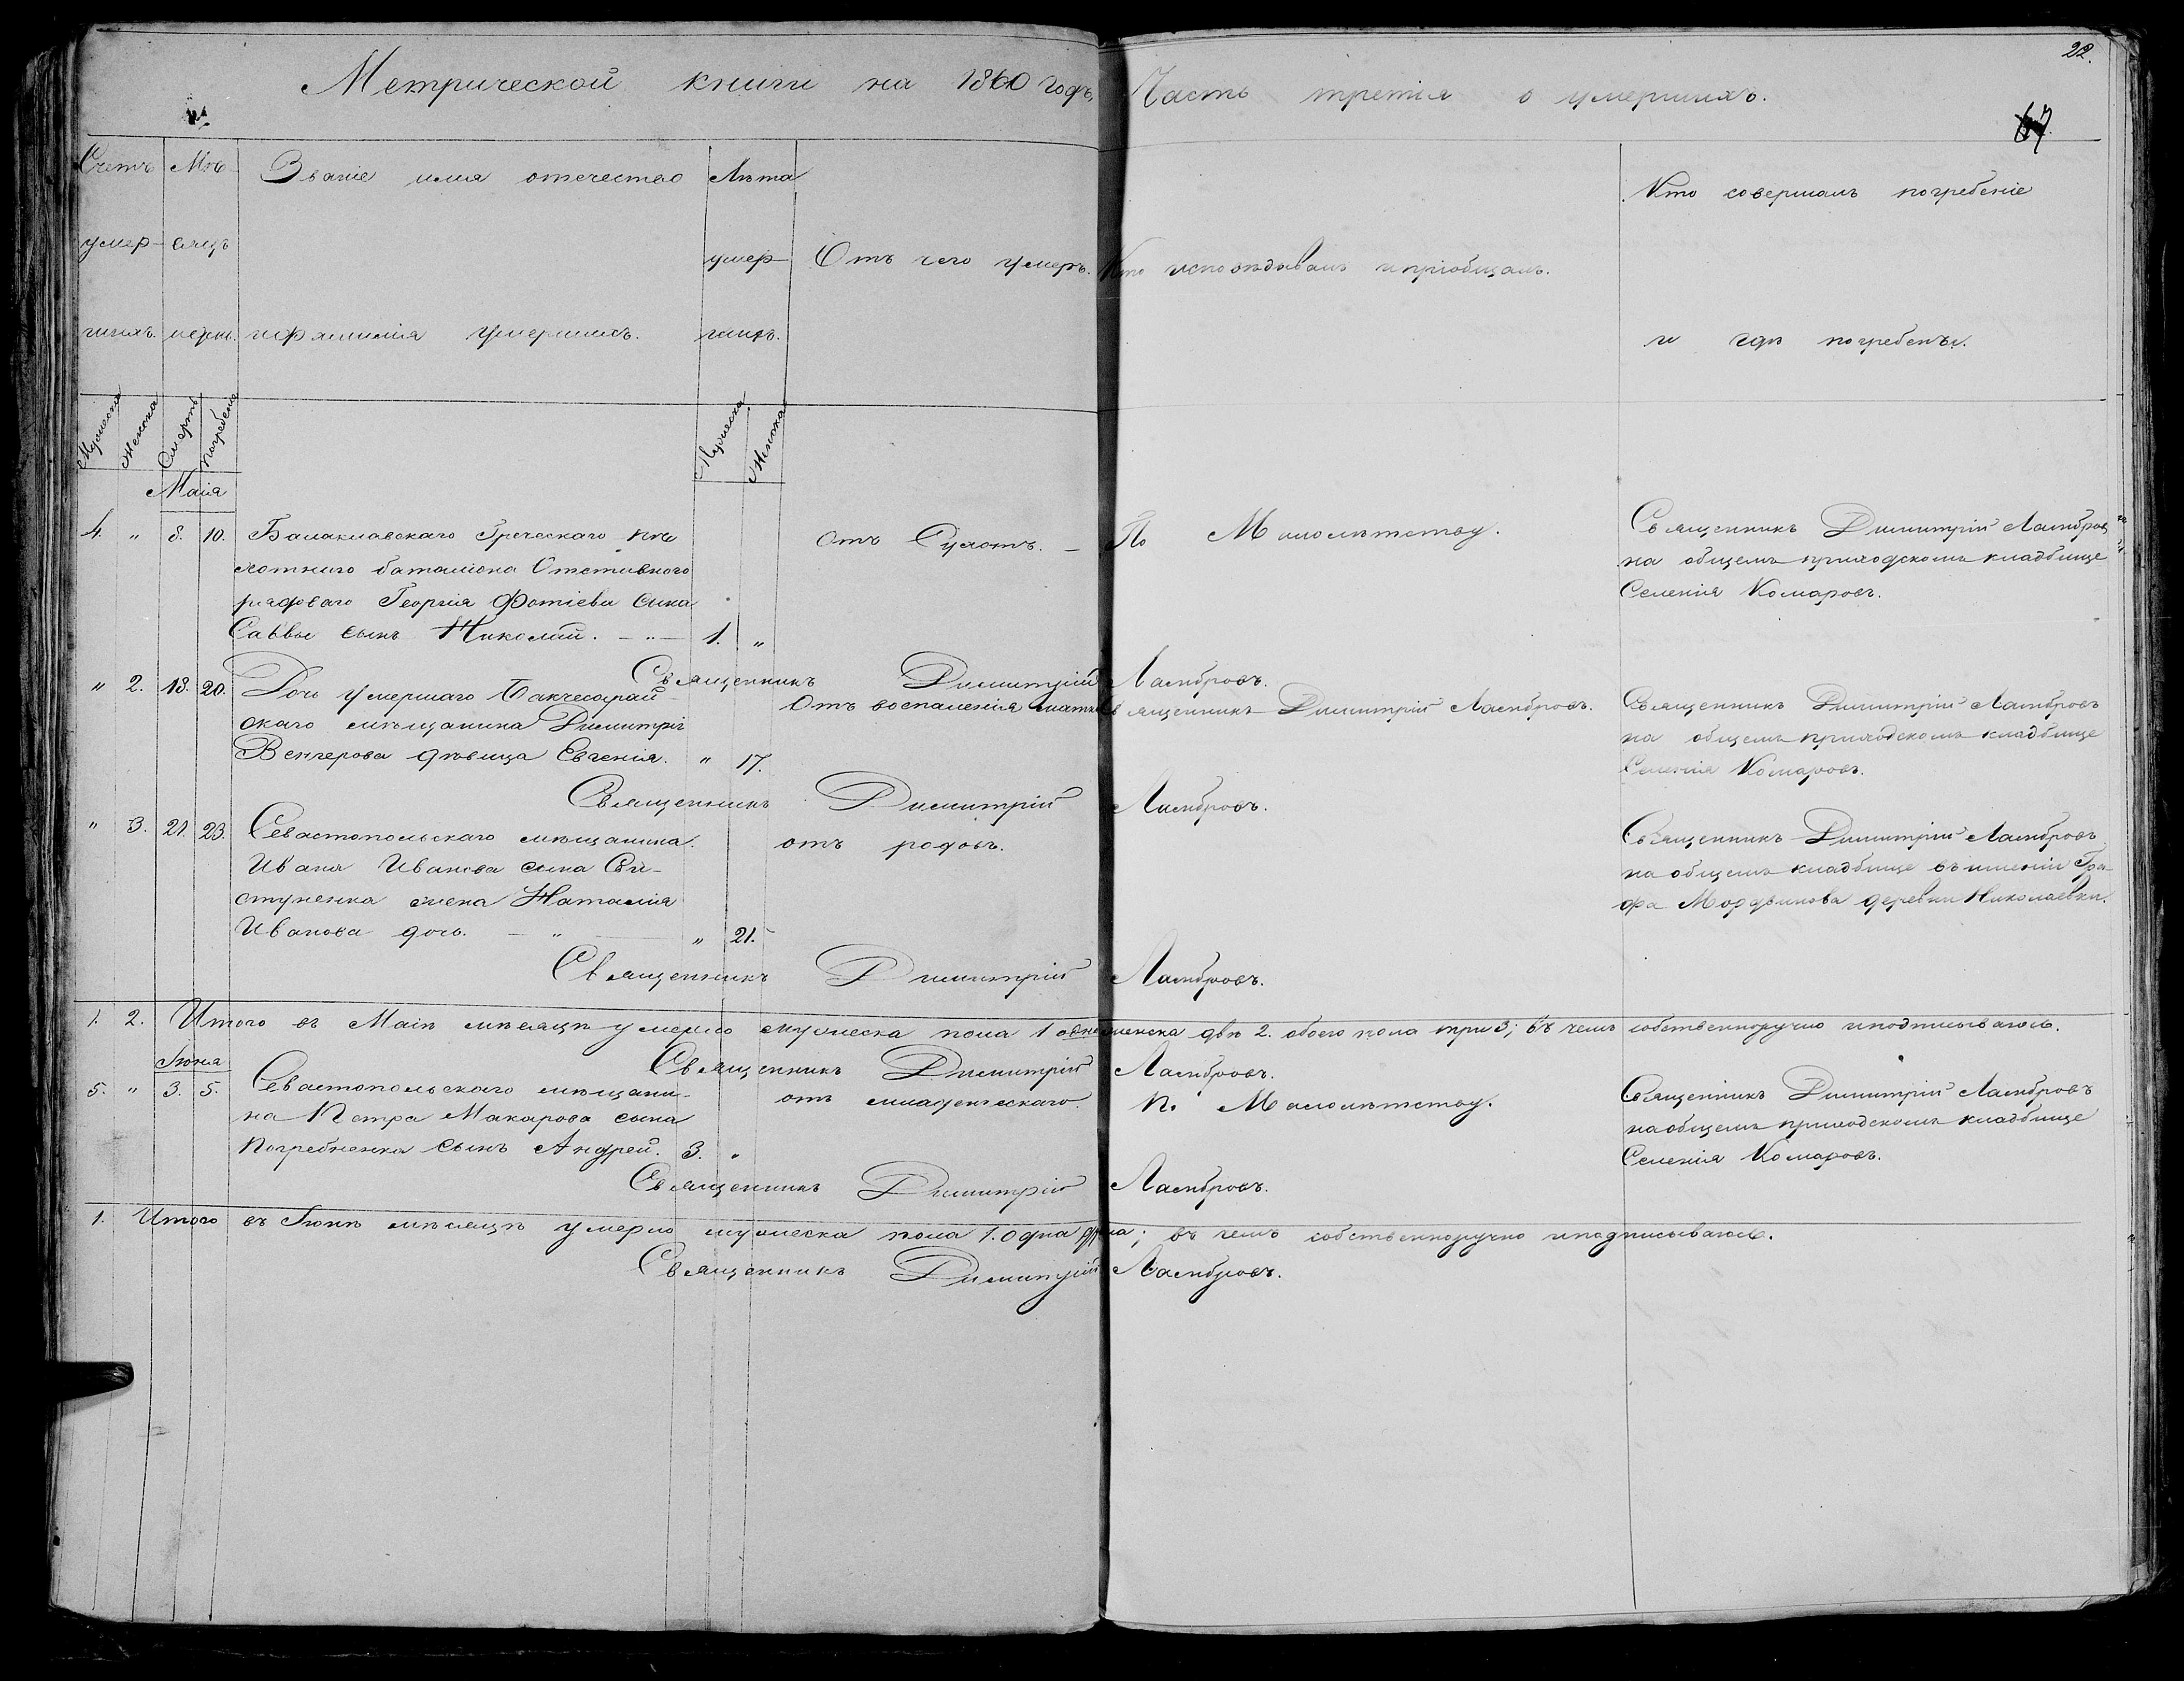 22.
Метрической книги на 1860 годъ, Часть третія о умершихъ.
67
Счетъ умершихъ.
Мѣсяцъ и день.
Званіе имя отечество и фамилія умершихъ.
Лѣта умершихъ.
Отъ чего умеръ.
Кто исповѣдывалъ и пріобщалъ.
Кто совершалъ погребеніе и гдѣ погребенъ.
Мужеска Женска Смерть Погребенія Мужеска Женска
Маія
4. " 8. 10. Балаклавскаго Греческаго пѣ- отъ Сухотъ. – По Малолѣтству. Священникъ Димитрій Ламбровъ
хотнаго баталіона Отставнаго на общемъ приходскомъ кладбище
рядоваго Георгія Фотіева сына Селенія Комаровъ.
Саввы сынъ Николай. – " – 1. "
Священникъ Димитрій Ламбровъ.
" 2. 18. 20. Дочь умершаго Бакчесарай- Отъ воспаленія матки Священникъ Димитрій Ламбровъ. Священникъ Димитрій Ламбровъ
скаго мѣщанина Димитрія на общемъ приходскомъ кладбище
Венгерова дѣвица Евгенія. " 17. Селенія Комаровъ.
Священникъ Димитрій Ламбровъ.
" 3. 21. 23. Севастопольскаго мѣщанина отъ родовъ. Священникъ Димитрій Ламбровъ
Ивана Иванова сына Сви- на общемъ кладбище въ имѣніи Гра-
стуненка жена Наталія фа Мордвинова деревни Николаевки.
Иванова дочь. – " – " 21.
Священникъ Димитрій Ламбровъ.
1. 2. Итого въ Маіѣ мѣсяцѣ умерло мужеска пола 1 одинъ женска двѣ 2. обоего пола три 3; въ чемъ собственноручно и подписываюсь.
Священникъ Димитрій Ламбровъ.
Іюня
5. " 3. 5. Севастопольскаго мѣщани- отъ младенческаго По Малолѣтству. Священникъ Димитрій Ламбровъ
на Петра Макарова сына на общемъ приходскомъ кладбище
Погребненка сынъ Андрей. 3. " Селенія Комаровъ.
Священникъ Димитрій Ламбровъ.
1. Итого въ Іюнѣ мѣсяцѣ умерло мужеска пола 1. Одна душа; въ чемъ собственноручно и подписываюсь.
Священникъ Димитрій Ламбровъ.